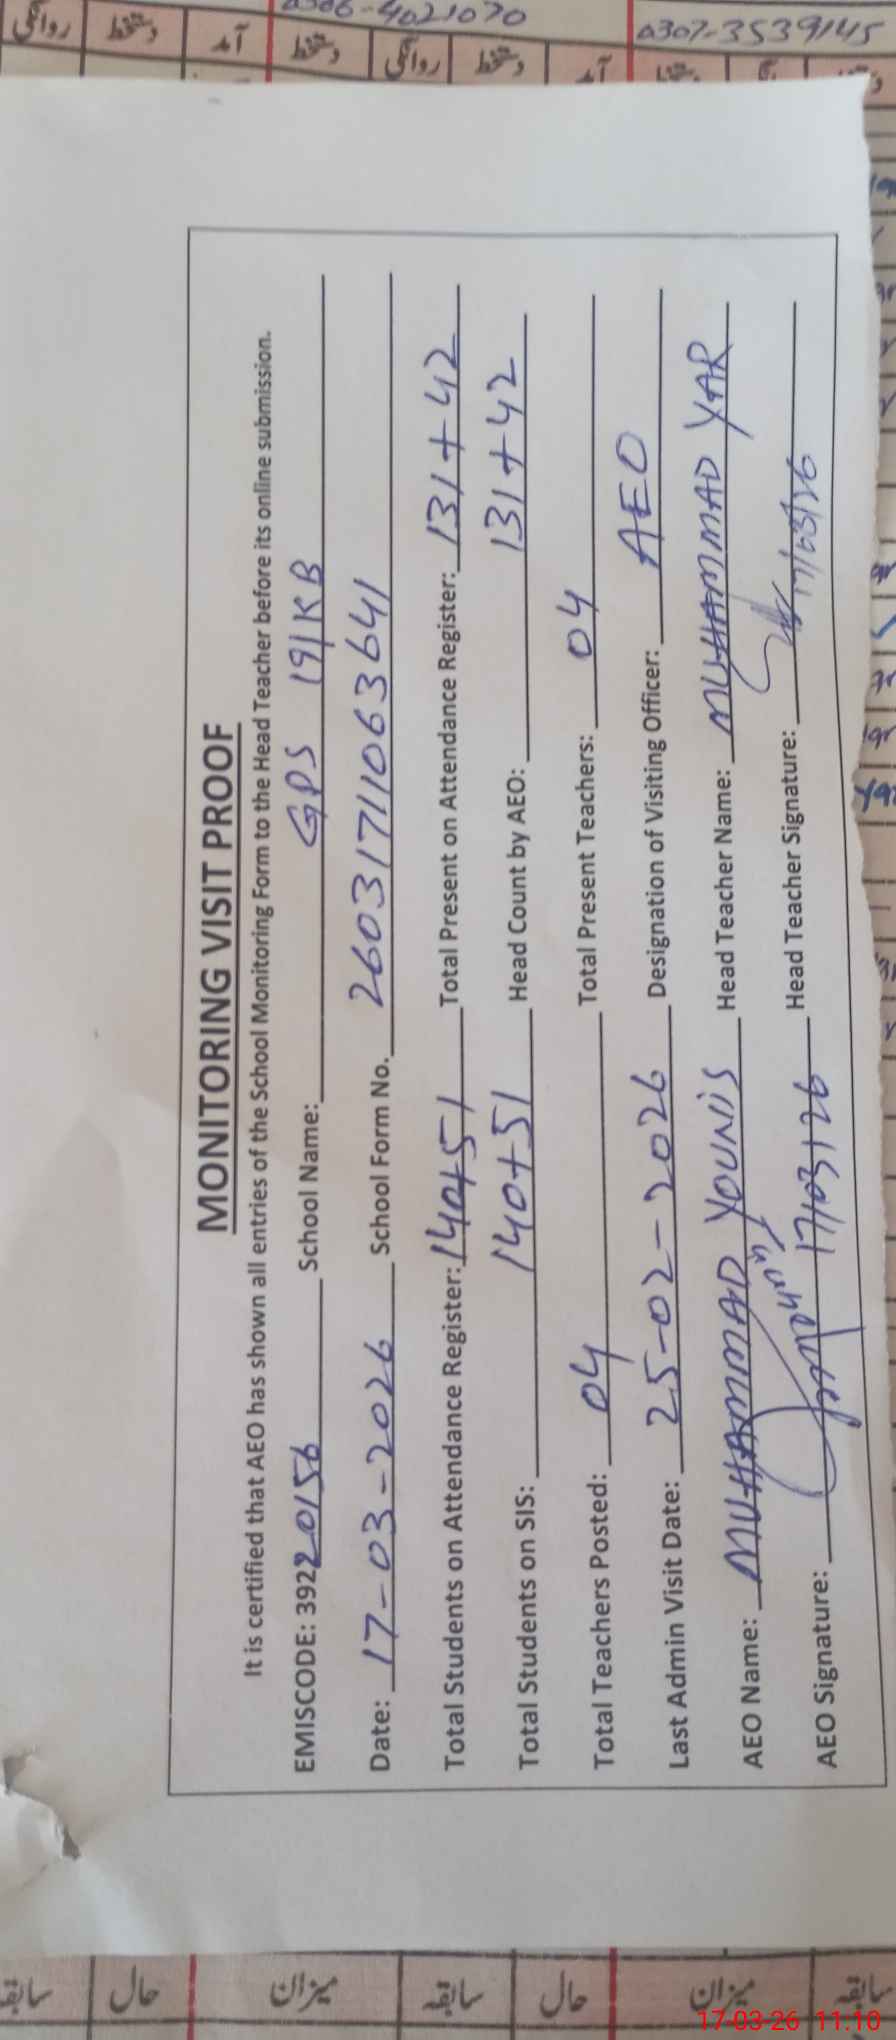 0306-4021070
0307-3539145
روانگی دستخط آمد دستخط روانگی دستخط آمد
MONITORING VISIT PROOF
It is certified that AEO has shown all entries of the School Monitoring Form to the Head Teacher before its online submission.
EMISCODE: 39220156 School Name: GPS 191KB
Date: 17-03-2026 School Form No. 26031711063641
Total Students on Attendance Register: 140+51 Total Present on Attendance Register: 131+42
Total Students on SIS: 140+51 Head Count by AEO: 131+42
Total Teachers Posted: 04 Total Present Teachers: 04
Last Admin Visit Date: 25-02-2026 Designation of Visiting Officer: AEO
AEO Name: MUHAMMAD YOUNIS Head Teacher Name: MUHAMMAD YAR
AEO Signature: 17/03/26 Head Teacher Signature: 17/03/26
سابقہ حال میزان سابقہ حال میزان سابقہ
17-03-26 11:10